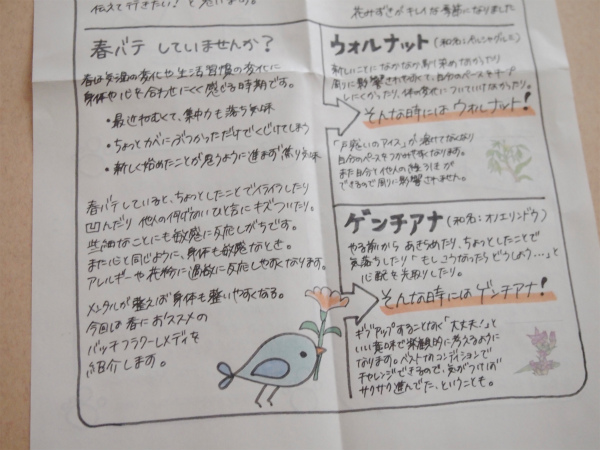 伝えて行きたい！と思います。
花みずきがキレイな季節になりました
春バテ していませんか？
春は気温の変化や生活習慣の変化に
身体や心を合わせにくく感じる時期です。
・最近ねむくて、集中力も落ち気味
・ちょっとカベにぶつかっただけでくじけてしまう
・新しく始めたことが思うように進まず焦り気味
春バテしていると、ちょっとしたことでイライラしたり
凹んだり 他人の何げないひと言にキズついたり。
些細なことにも敏感に反応しがちです。
また心と同じように、身体も敏感なとき。
アレルギーや花粉に過敏に反応しやすくなります。
メンタルが整えば身体も整いやすくなる。
今回は春におススメの
バッチフラワーレメディを
紹介します。
ウォルナット（和名：ペルシャグルミ）
新しいことになかなか馴染めなかったり
周りに影響されやすくて、自分のペースをキープ
しにくかったり、体の変化についていけなかったり。
そんな時には ウォルナット！
「戸惑いのアイス」が溶けてなくなり
自分のペースをつかみやすくなります。
また自分と他人の線引きが
できるので周りに影響されません。
ゲンチアナ（和名：オノエリンドウ）
やる前から あきらめたり、ちょっとしたことで
気落ちしたり「もし、こうなったらどうしよう…」と
心配を先取りしたり。
そんな時には ゲンチアナ！
ギブアップすることなく「大丈夫！」と
いい意味で楽観的に考えるように
なります。ベストなコンディションで
チャレンジできるので、気がつけば
サクサク進んでた、ということも。